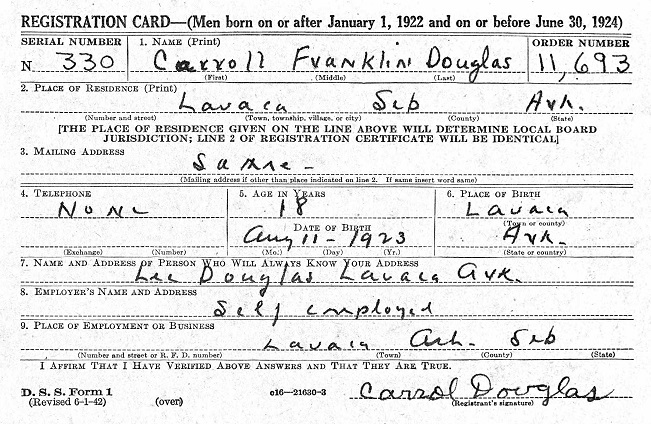 REGISTRATION CARD—(Men born on or after January 1, 1922 and on or before June 30, 1924)
SERIAL NUMBER 1. NAME (Print) ORDER NUMBER
N 330 Carroll Franklin Douglas 11,693
(First) (Middle) (Last)
2. PLACE OF RESIDENCE (Print)
Lavaca Seb Ark.
(Number and street) (Town, township, village, or city) (County) (State)
[THE PLACE OF RESIDENCE GIVEN ON THE LINE ABOVE WILL DETERMINE LOCAL BOARD
JURISDICTION; LINE 2 OF REGISTRATION CERTIFICATE WILL BE IDENTICAL]
3. MAILING ADDRESS
Same -
(Mailing address if other than place indicated on line 2. If same insert word same)
4. TELEPHONE 5. AGE IN YEARS 6. PLACE OF BIRTH
None 18 Lavaca
(Town or county)
DATE OF BIRTH
Aug 11-1923 Ark.
(Exchange) (Number) (Mo.) (Day) (Yr.) (State or country)
7. NAME AND ADDRESS OF PERSON WHO WILL ALWAYS KNOW YOUR ADDRESS
Lee Douglas Lavaca Ark.
8. EMPLOYER'S NAME AND ADDRESS
Self employed
9. PLACE OF EMPLOYMENT OR BUSINESS
Lavaca Ark. Seb
(Number and street or R. F. D. number) (Town) (County) (State)
I AFFIRM THAT I HAVE VERIFIED ABOVE ANSWERS AND THAT THEY ARE TRUE.
D. S. S. Form 1
(Revised 6-1-42) (over) c16—21630-3 Carrol Douglas
(Registrant's signature)